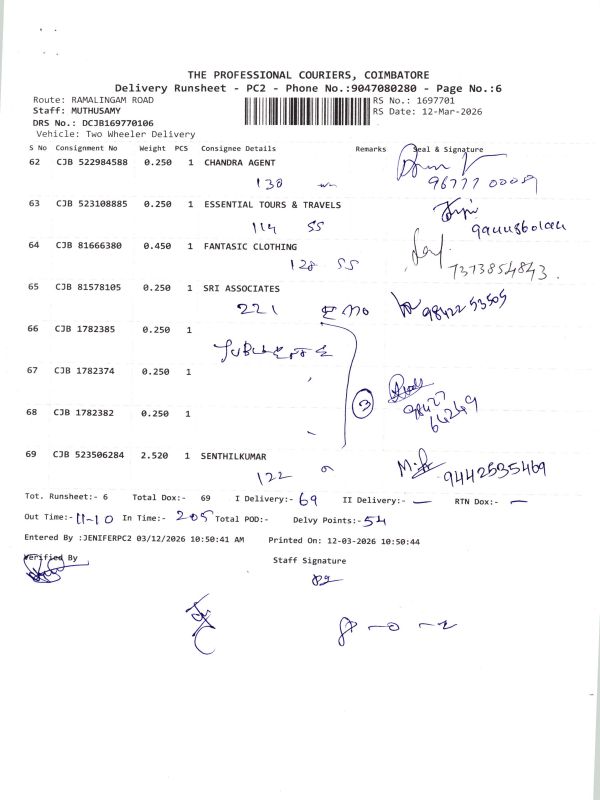 THE PROFESSIONAL COURIERS, COIMBATORE
Delivery Runsheet - PC2 - Phone No.:9047080280 - Page No.:6
Route: RAMALINGAM ROAD RS No.: 1697701
Staff: MUTHUSAMY RS Date: 12-Mar-2026
DRS No.: DCJB169770106
Vehicle: Two Wheeler Delivery
S No Consignment No Weight PCS Consignee Details Remarks Seal & Signature
62 CJB 522984588 0.250 1 CHANDRA AGENT
130
96777 00059
63 CJB 523108885 0.250 1 ESSENTIAL TOURS & TRAVELS
114 SS
64 CJB 81666380 0.450 1 FANTASIC CLOTHING
128 SS
7373854843.
65 CJB 81578105 0.250 1 SRI ASSOCIATES
221
98422 53505
66 CJB 1782385 0.250 1
67 CJB 1782374 0.250 1
3
98427
64249
68 CJB 1782382 0.250 1
69 CJB 523506284 2.520 1 SENTHILKUMAR
122
9442535469
Tot. Runsheet:- 6 Total Dox:- 69 I Delivery:- 69 II Delivery:- — RTN Dox:- —
Out Time:- 11-10 In Time:- 205 Total POD:- Delvy Points:- 54
Entered By :JENIFERPC2 03/12/2026 10:50:41 AM Printed On: 12-03-2026 10:50:44
Verified By Staff Signature